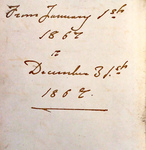 From January 1st
1867
to
December 31st
1867.